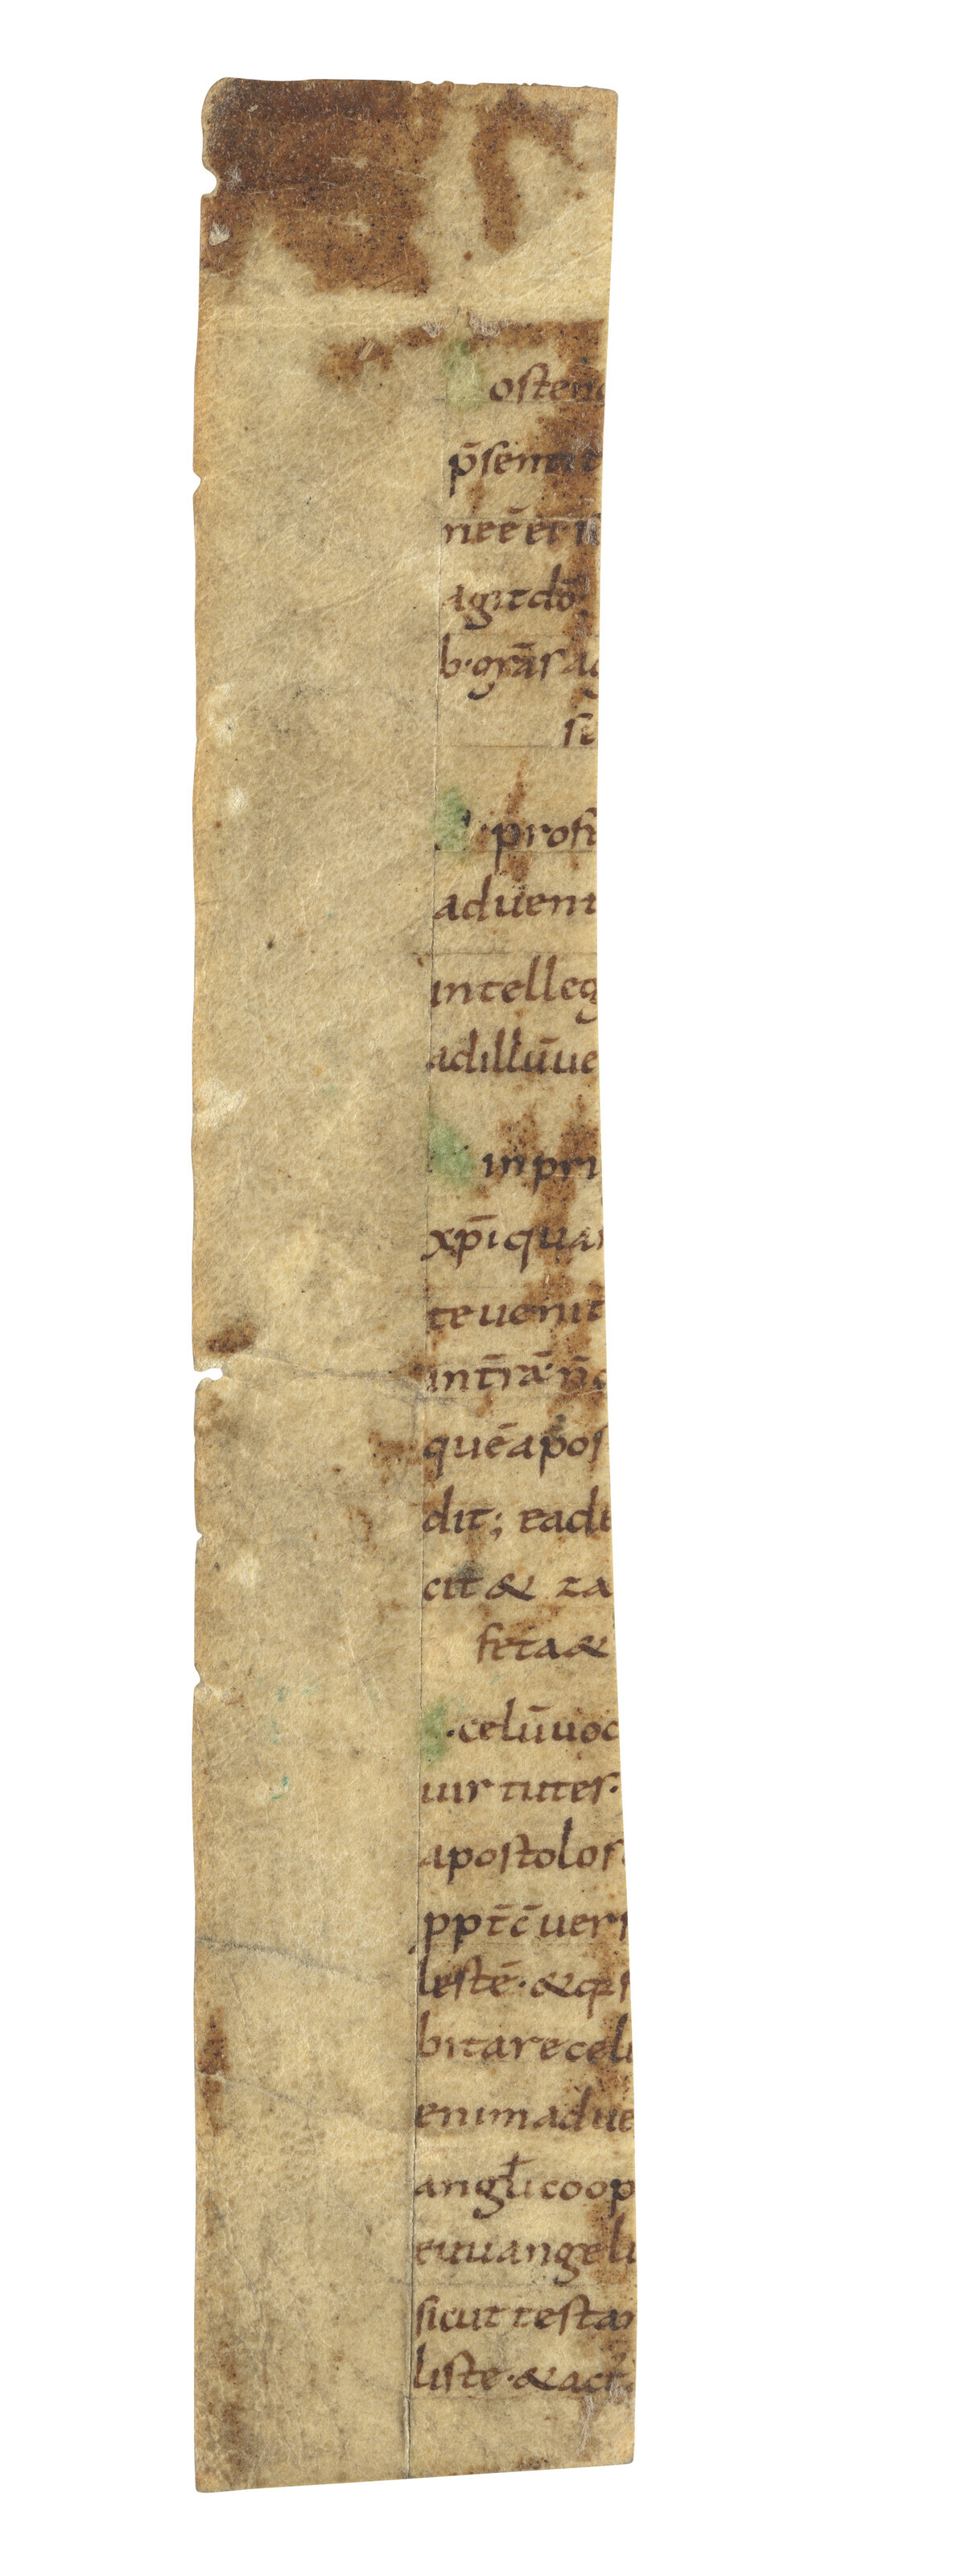 osten
p̄sentit
neē et
agit dō
b. gr̄as ag
sē
. profe
adueni
intelleg
ad illū ue
in pri
xp̄i qua
te uenit
in t̄ra. n̄
quē apos
dit; eade
cit & za
feta &
. celū uoc
uirtutes.
apostolos
pp̄t c̄ ueri
lestē. & qs
bitare celu
enim adue
angłi coop
euuangeli
sicut testa
liste. & act